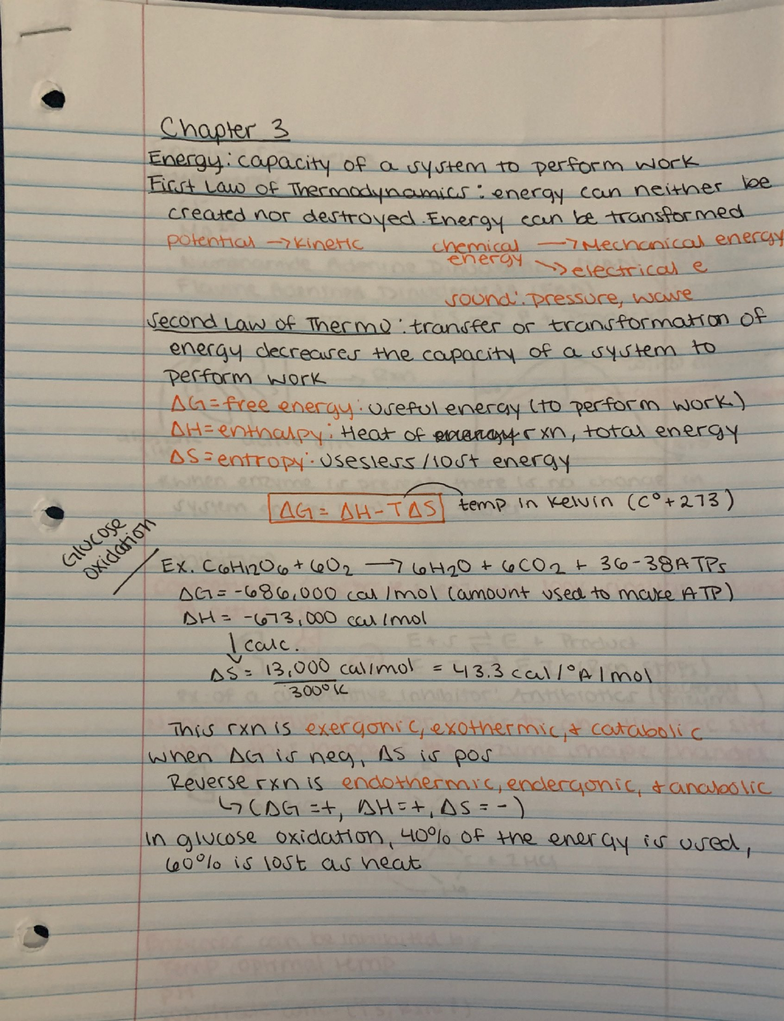 Chapter 3
Energy: capacity of a system to perform work
First Law of Thermodynamics: energy can neither be
created nor destroyed. Energy can be transformed
potential → kinetic chemical energy → Mechanical energy
→ electrical e
sound: pressure, wave
Second Law of Thermo: transfer or transformation of
energy decreases the capacity of a system to
perform work
ΔG = free energy: useful energy (to perform work)
ΔH = enthalpy: Heat of rxn, total energy
ΔS = entropy: usesless/lost energy
ΔG = ΔH - TΔS temp in Kelvin (C° + 273)
Glucose
oxidation
Ex. C6H12O6 + 6O2 → 6H2O + 6CO2 + 36-38 ATPs
ΔG = -686,000 cal/mol (amount used to make ATP)
ΔH = -673,000 cal/mol
↓ calc.
ΔS = 13,000 cal/mol = 43.3 cal/°A/mol
300°K
This rxn is exergonic, exothermic, + catabolic
when ΔG is neg, ΔS is pos
Reverse rxn is endothermic, endergonic, + anabolic
↳ (ΔG = +, ΔH = +, ΔS = -)
In glucose oxidation, 40% of the energy is used,
60% is lost as heat